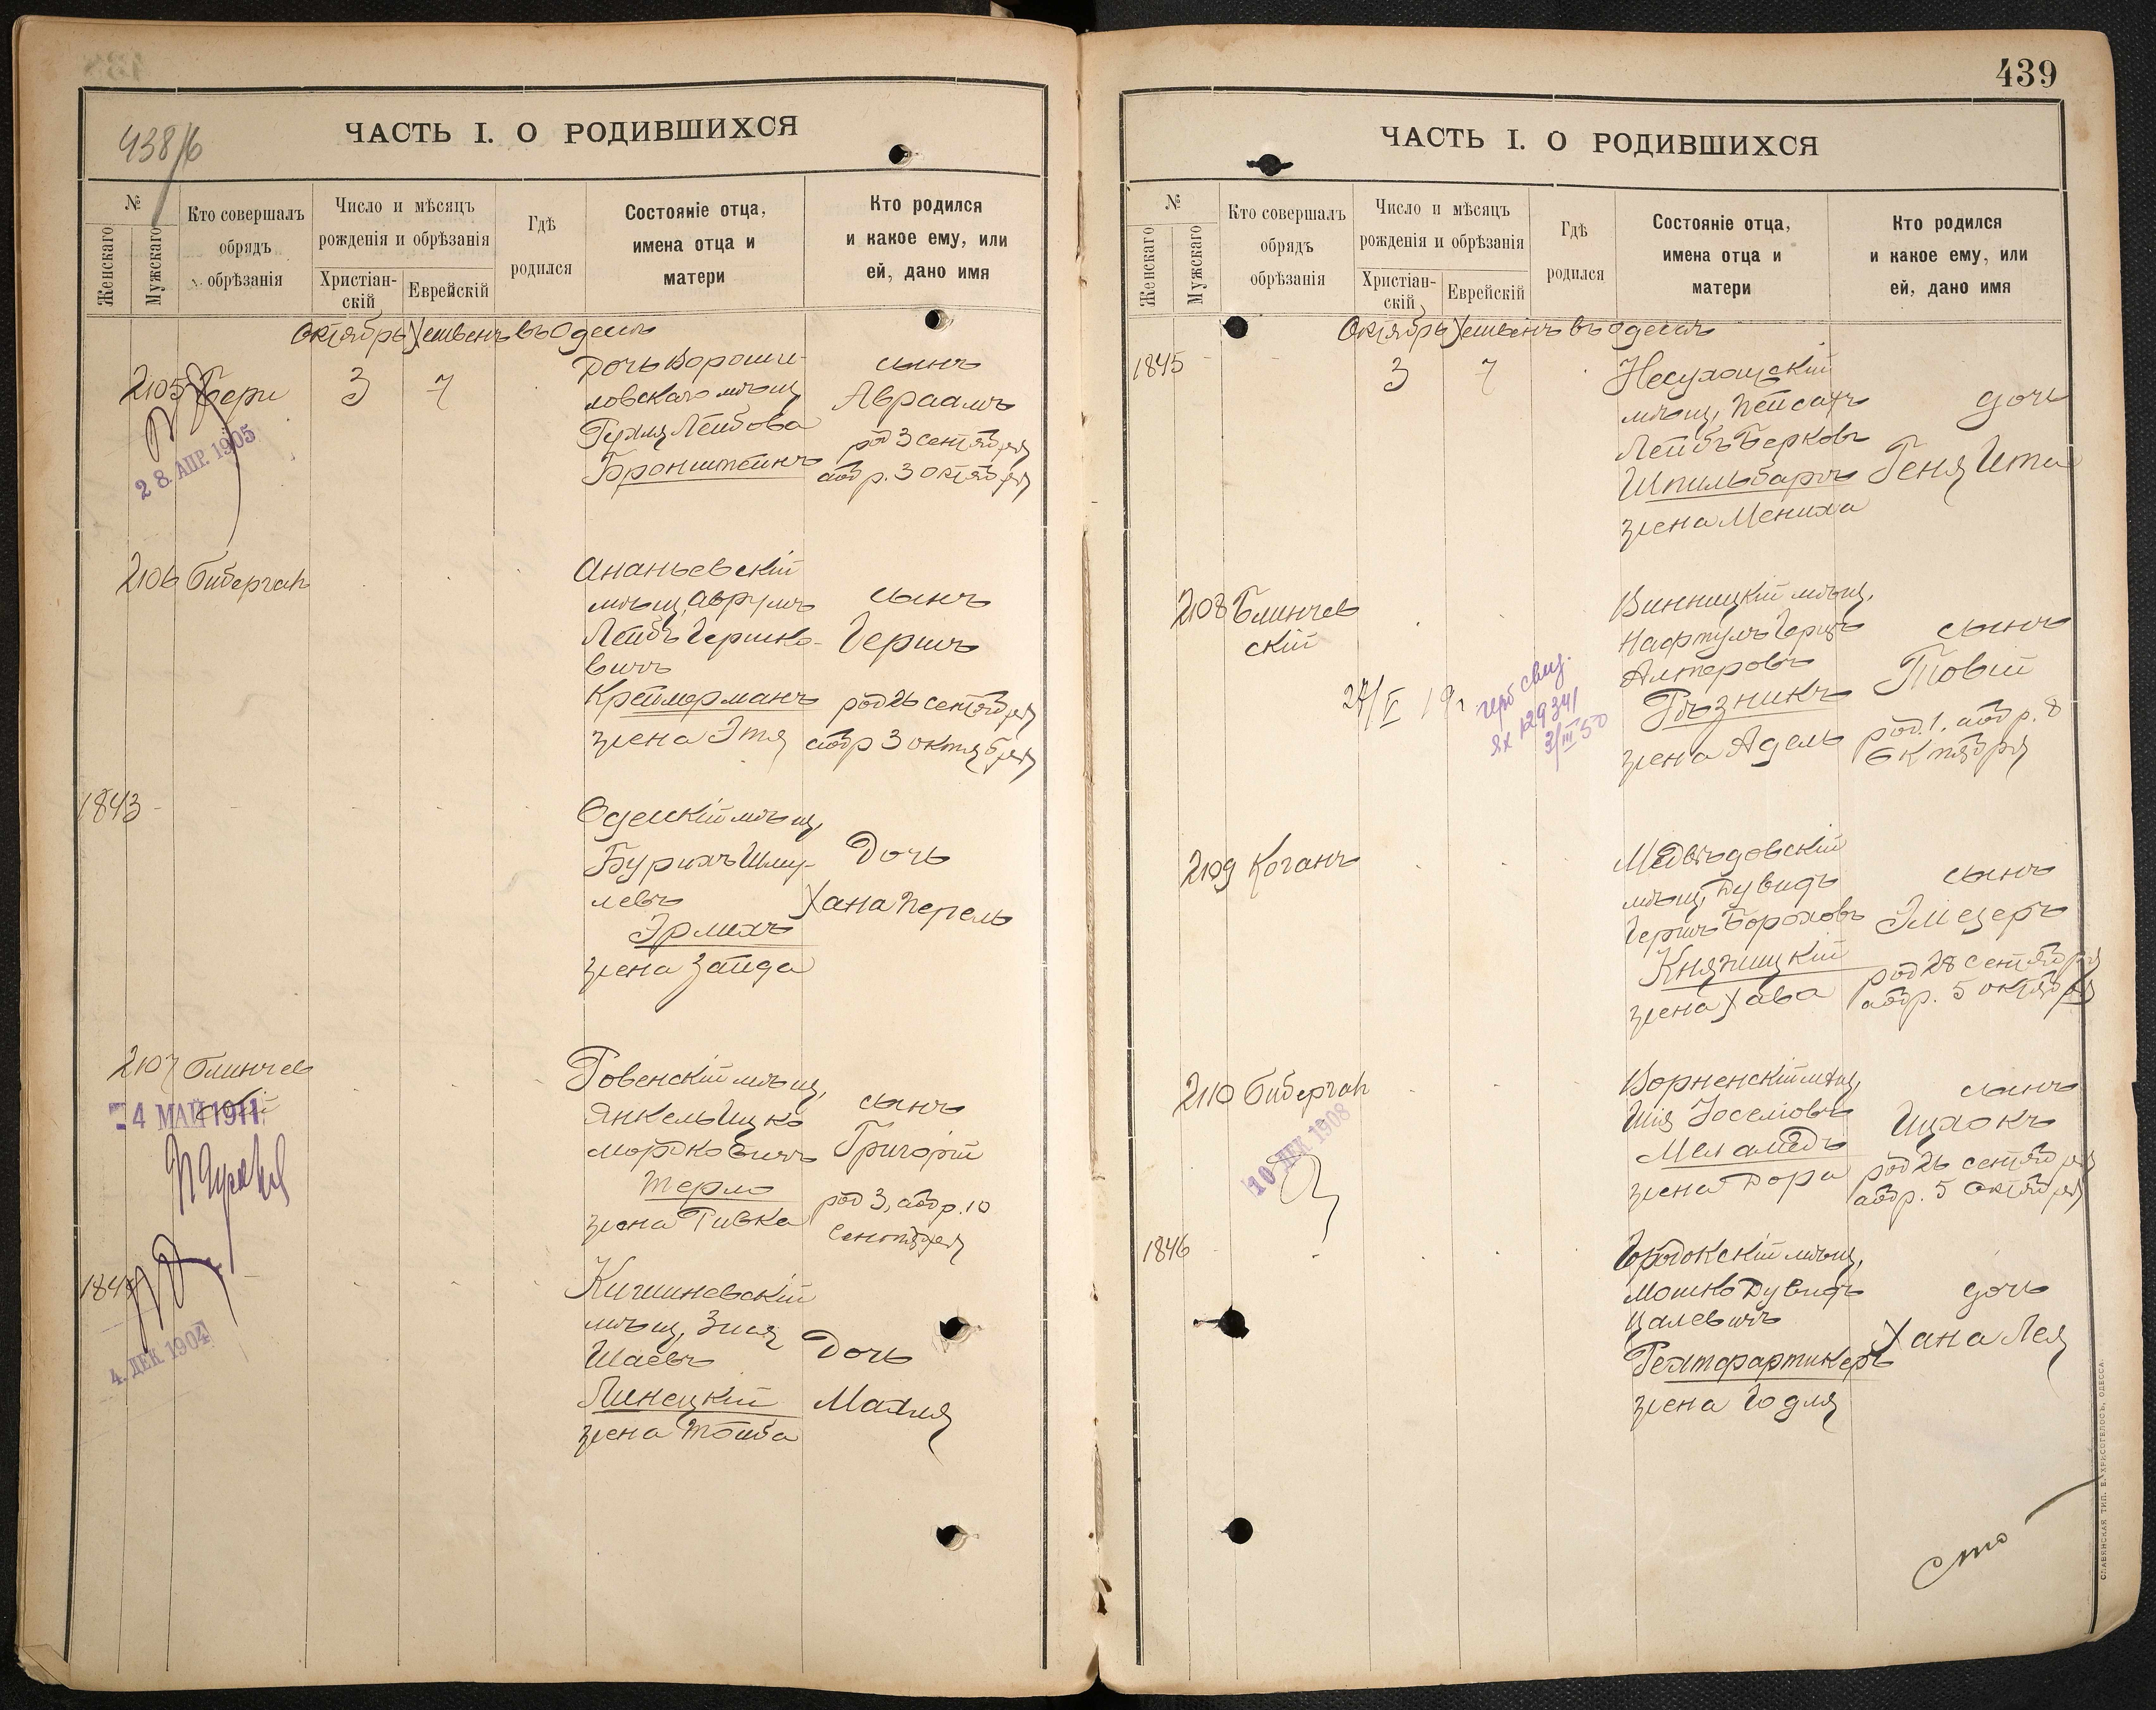 438/б
ЧАСТЬ I. О РОДИВШИХСЯ
№
Женскаго
Мужскаго
Кто совершалъ
обрядъ
обрѣзанія
Число и мѣсяцъ
рожденія и обрѣзанія
Христіан-
скій
Еврейскій
Гдѣ
родился
Состояніе отца,
имена отца и
матери
Кто родился
и какое ему, или
ей, дано имя
Октябрь Хешвенъ въ Одессѣ
2105 Бери 3 7
Дочь Вороши-
ловскаго мѣщ
Рухля Лейбова
Бронштейнъ
сынъ
Авраамъ
род 3 сентября
абр. 3 октября
28. АПР. 1905
2106 Биберган
Ананьевскій
мѣщ, Аврумъ
Лейбъ Гершко-
вичъ
Креймерманъ
жена Этя
сынъ
Гершъ
род 26 сентября
абр 3 октября
1843
Одесскій мѣщ,
Бурихъ Шму-
левъ
Эрлихъ
жена Зайда
Дочь
Хана Перель
2107 Блинчев
ский
Ровенскій мѣщ,
Янкель Ицко
Мордковичъ
Терло
жена Ривка
сынъ
Григорій
род 3, абр. 10
Сентября
4 МАЙ 1911
184
Кишиневскій
мѣщ, Зися
Шаевъ
Линецкій
жена Тойба
Дочь
Малия
4. ДЕК 1904
439
ЧАСТЬ I. О РОДИВШИХСЯ
№
Женскаго
Мужскаго
Кто совершалъ
обрядъ
обрѣзанія
Число и мѣсяцъ
рожденія и обрѣзанія
Христіан-
скій
Еврейскій
Гдѣ
родился
Состояніе отца,
имена отца и
матери
Кто родился
и какое ему, или
ей, дано имя
Октябрь Хешвенъ въ Одессѣ
1845 3 7
Несухоцскій
мѣщ, Пейсахъ
Лейбъ Берковъ
Шпильбаръ
жена Мениха
дочь
Геня Ита
2108 Блинчев
ский
Винницкій мѣщ,
Нафтулъ Герцъ
Алтеровъ
Рѣзникъ
жена Адель
сынъ
Товій
род. 1. абр. 8
Октября
герб свид.
ЯХ 129341
3/III 50
2109 Коганъ
Медвѣдовскій
мѣщ, Дувидъ
Гершъ Бороховъ
Княжицкій
жена Хава
сынъ
Элиезеръ
род 28 сентября
абр. 5 октября
2110 Биберган
Ворненскій мѣщ,
Шия Іоселіовъ
Меламедъ
жена Дора
сынъ
Ицхокъ
род 26 сентября
абр. 5 Октября
10 ДЕК 1908
1846
Городокскій мѣщ,
Мошко Дувидъ
Цалевичъ
Рехтфартикеръ
жена Годля
дочь
Хана Лея
сто
СЛАВЯНСКАЯ ТИП. Е. ХРИСОГЕЛОСЪ, ОДЕССА.